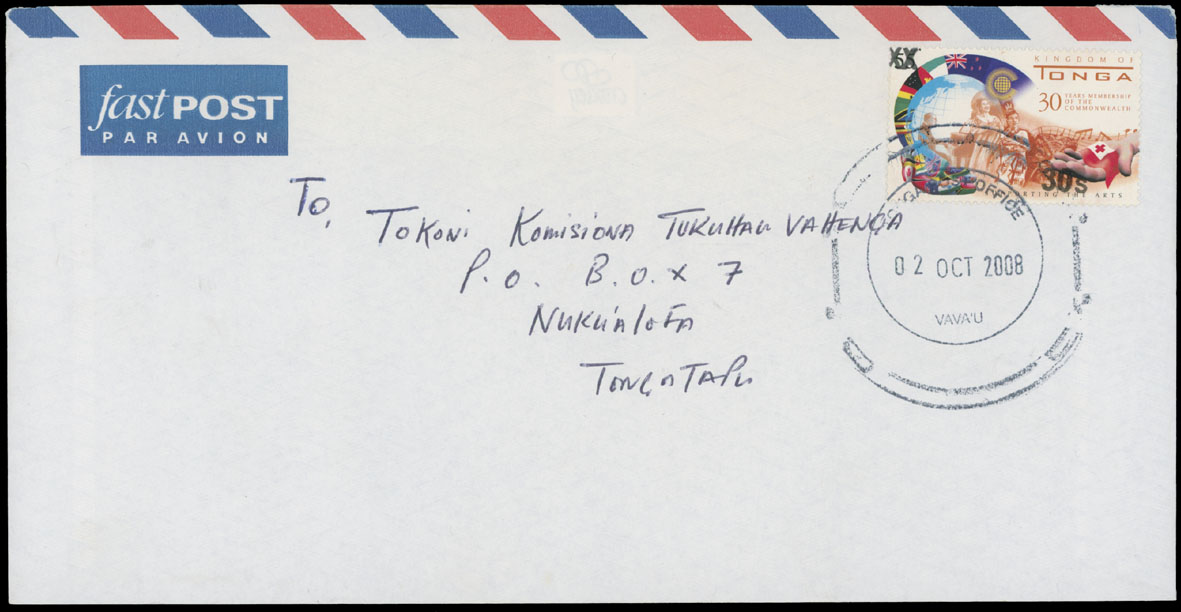 fast POST
PAR AVION
KINGDOM OF
TONGA
30 YEARS MEMBERSHIP
OF THE
COMMONWEALTH
30s
THE ARTS
POST OFFICE
02 OCT 2008
VAVA'U
To,
TOKONI KOMISIONA TUKUHAU VAHENGA
P.O. B.O.X 7
NUKU'ALOFA
TONGATAPU